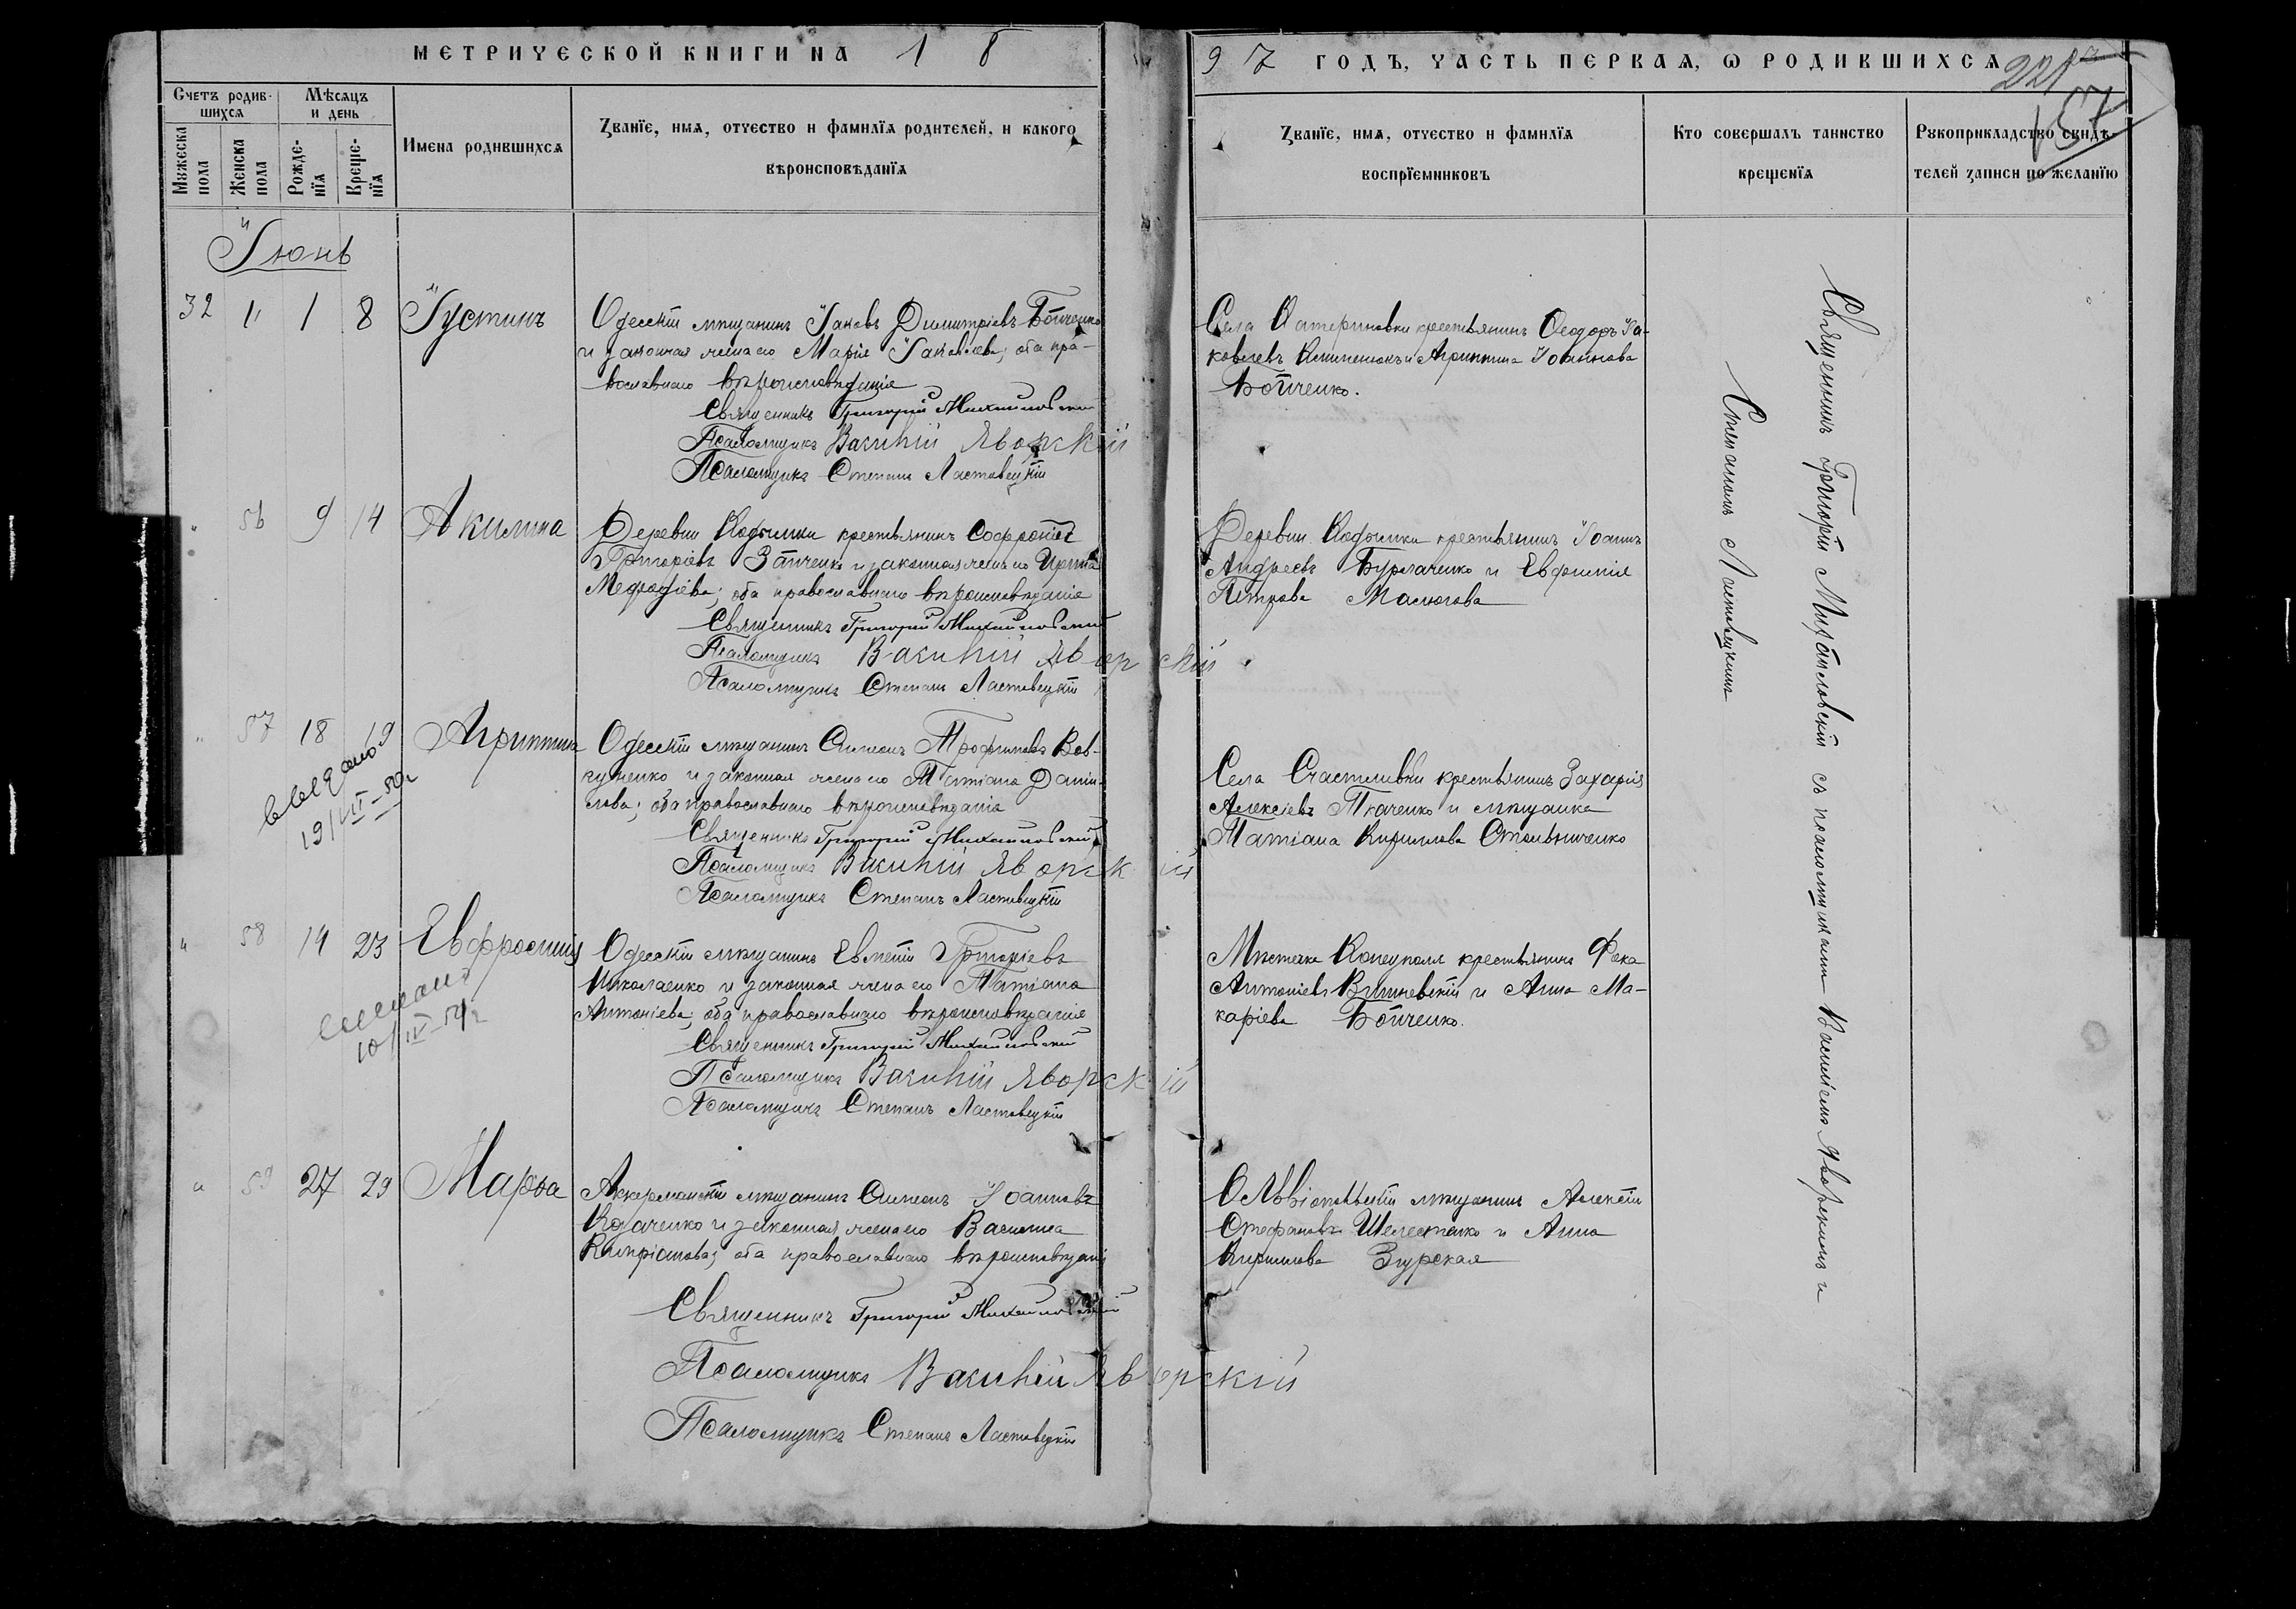 МЕТРИЧЕСКОЙ КНИГИ НА 18
97 ГОДЪ, ЧАСТЬ ПЕРВАЯ, Ѡ РОДИВШИХСЯ
221
157
Счетъ родив-
шихся
Мѣсяцъ
и день
Мужеска
пола
Женска
пола
Рожде-
нїя
Креще-
нїя
Имена родившихся
Званїе, имя, отчество и фамилїя родителей, и какого
вѣроисповѣданїя
Званїе, имя, отчество и фамилїя
воспрїемниковъ
Кто совершалъ таинство
крещенїя
Рукоприкладство свидѣ-
телей записи по желанїю
Іюнь
32 " 1 8 Іустинъ
Одесскій мѣщанинъ Іаковъ Димитріевъ Бойченко
и законная жена его Марія Іаковлева; оба пра-
вославнаго вѣроисповѣданія
Священникъ Григорій Михайловскій
Псаломщикъ Василій Яворскій
Псаломщикъ Степанъ Ластовецкій
Села Катериновки крестьянинъ Ѳеодоръ Іа-
ковлевъ и Агриппина Іоаннова
Бойченко.
" 56 9 14 Акилина
Деревни Кодымки крестьянинъ Софроній
Григоріевъ Зайченко и законная жена его Ирина
Меѳодіева; оба православнаго вѣроисповѣданія
Священникъ Григорій Михайловскій
Псаломщикъ Василій Яворскій
Псаломщикъ Степанъ Ластовецкій
Деревни Кодымки крестьянинъ Іоаннъ
Андреевъ Бурлаченко и Евфимія
Петрова Малюгова
" 57 18 19 Агриппина
выдано
19/VI-50г
Одесскій мѣщанинъ Симеонъ Трофимовъ Вов-
куненко и законная жена его Татіана Дании-
лова; оба православнаго вѣроисповѣданія
Священникъ Григорій Михайловскій
Псаломщикъ Василій Яворскій
Псаломщикъ Степанъ Ластовецкій
Села Счастливки крестьянинъ Захарія
Алексіевъ Ткаченко и мѣщанка
Татіана Кириллова
" 58 14 23 Евфросинія
10/IV-54г
Одесскій мѣщанинъ Евменій Григоріевъ
Николаенко и законная жена его Татіана
Антоніева; оба православнаго вѣроисповѣданія
Священникъ Григорій Михайловскій
Псаломщикъ Василій Яворскій
Псаломщикъ Степанъ Ластовецкій
Мѣстечка Конецполя крестьянинъ Фока
Антоніевъ Вишневскій и Анна Ма-
каріева Бойченко.
" 59 27 29 Марѳа
Аккерманскій мѣщанинъ Симеонъ Іоанновъ
Козаченко и законная жена его Василиса
Кипріанова; оба православнаго вѣроисповѣданія
Священникъ Григорій Михайловскій
Псаломщикъ Василій Яворскій
Псаломщикъ Степанъ Ластовецкій
Ольвіопольскій мѣщанинъ Алексій
Стефановъ Шелестенко и Анна
Кириллова Згурская
Священникъ Григорій Михайловскій съ псаломщиками Василіемъ Яворскимъ и
Степаномъ Ластовецкимъ